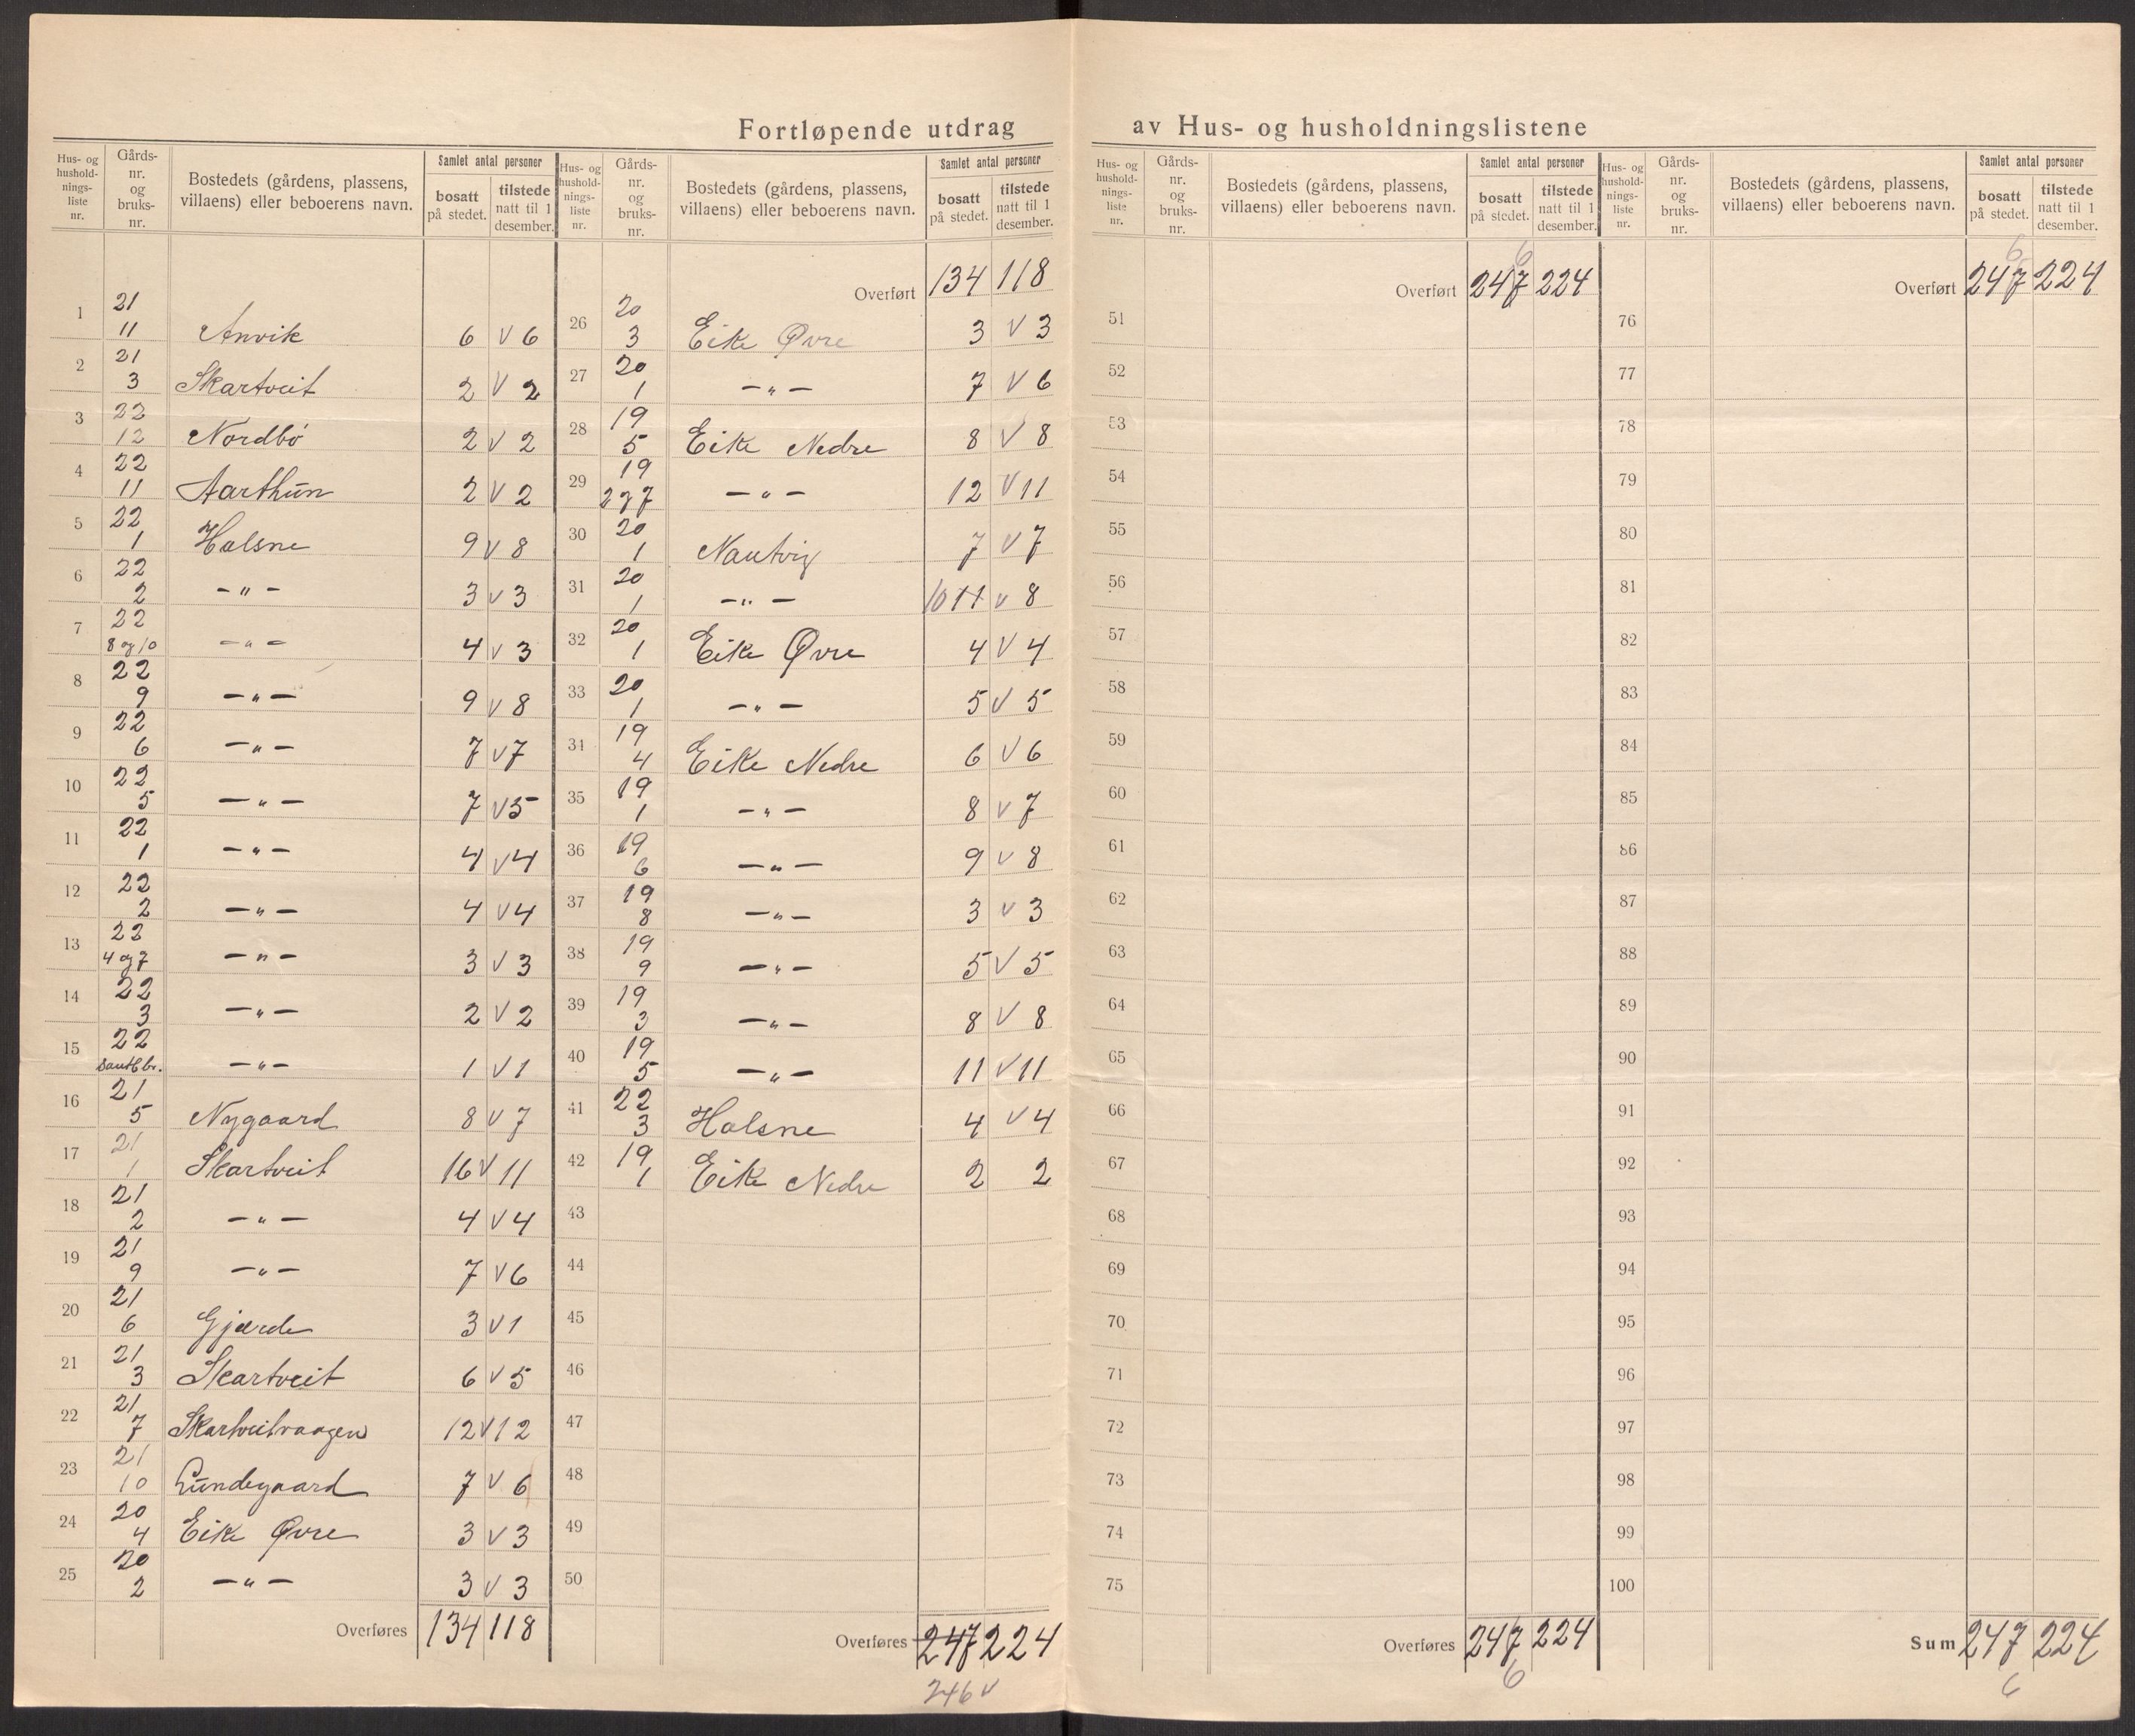 Fortløpende utdrag av Hus- og husholdningslistene
Hus- og husholdnings-liste nr. | Gårds-nr. og bruks-nr. | Bostedets (gårdens, plassens, villaens) eller beboerens navn. | Samlet antal personer | bosatt på stedet. | tilstede natt til 1 desember.
1 | 21 11 | Anvik | 6 | V 6
2 | 21 3 | Skartveit | 2 | V 2
3 | 22 12 | Nordbø | 2 | V 2
4 | 22 11 | Aarthun | 2 | V 2
5 | 22 1 | Halsne | 9 | V 8
6 | 22 2 | -"- | 3 | V 3
7 | 22 8 og 10 | -"- | 4 | V 3
8 | 22 9 | -"- | 9 | V 8
9 | 22 6 | -"- | 7 | V 7
10 | 22 5 | -"- | 7 | V 5
11 | 22 1 | -"- | 4 | V 4
12 | 22 2 | -"- | 4 | V 4
13 | 22 4 og 7 | -"- | 3 | V 3
14 | 22 3 | -"- | 2 | V 2
15 | 22 | -"- | 1 | V 1
16 | 21 5 | Nygaard | 8 | V 7
17 | 21 1 | Skartveit | 16 | V 11
18 | 21 2 | -"- | 4 | V 4
19 | 21 9 | -"- | 7 | V 6
20 | 21 6 | Gjærde | 3 | V 1
21 | 21 3 | Skartveit | 6 | V 5
22 | 21 7 | Skartveitvaagen | 12 | V 12
23 | 21 10 | Lundegaard | 7 | V 6
24 | 20 4 | Eike Øvre | 3 | V 3
25 | 20 2 | -"- | 3 | V 3
Overføres 134 118
Hus- og husholdnings-liste nr. | Gårds-nr. og bruks-nr. | Bostedets (gårdens, plassens, villaens) eller beboerens navn. | Samlet antal personer | bosatt på stedet. | tilstede natt til 1 desember.
Overført 134 118
26 | 20 3 | Eike Øvre | 3 | V 3
27 | 20 1 | -"- | 7 | V 6
28 | 19 5 | Eike Nedre | 8 | V 8
29 | 19 2 og 7 | -"- | 12 | V 11
30 | 20 1 | Nautvig | 7 | V 7
31 | 20 1 | -"- | 10 11 | V 8
32 | 20 1 | Eike Øvre | 4 | V 4
33 | 20 1 | -"- | 5 | V 5
34 | 19 4 | Eike Nedre | 6 | V 6
35 | 19 1 | -"- | 8 | V 7
36 | 19 6 | -"- | 9 | V 8
37 | 19 8 | -"- | 3 | V 3
38 | 19 9 | -"- | 5 | V 5
39 | 19 3 | -"- | 8 | V 8
40 | 19 5 | -"- | 11 | V 11
41 | 22 3 | Halsne | 4 | V 4
42 | 19 1 | Eike Nedre | 2 | 2
43
44
45
46
47
48
49
50
Overføres 247 224
246 V
Hus- og husholdnings-liste nr. | Gårds-nr. og bruks-nr. | Bostedets (gårdens, plassens, villaens) eller beboerens navn. | Samlet antal personer | bosatt på stedet. | tilstede natt til 1 desember.
6
Overført 247 224
51
52
53
54
55
56
57
58
59
60
61
62
63
64
65
66
67
68
69
70
71
72
73
74
75
Overføres 247 224
6
Hus- og husholdnings-liste nr. | Gårds-nr. og bruks-nr. | Bostedets (gårdens, plassens, villaens) eller beboerens navn. | Samlet antal personer | bosatt på stedet. | tilstede natt til 1 desember.
6
Overført 247 224
76
77
78
79
80
81
82
83
84
85
86
87
88
89
90
91
92
93
94
95
96
97
98
99
100
Sum 247 224
6